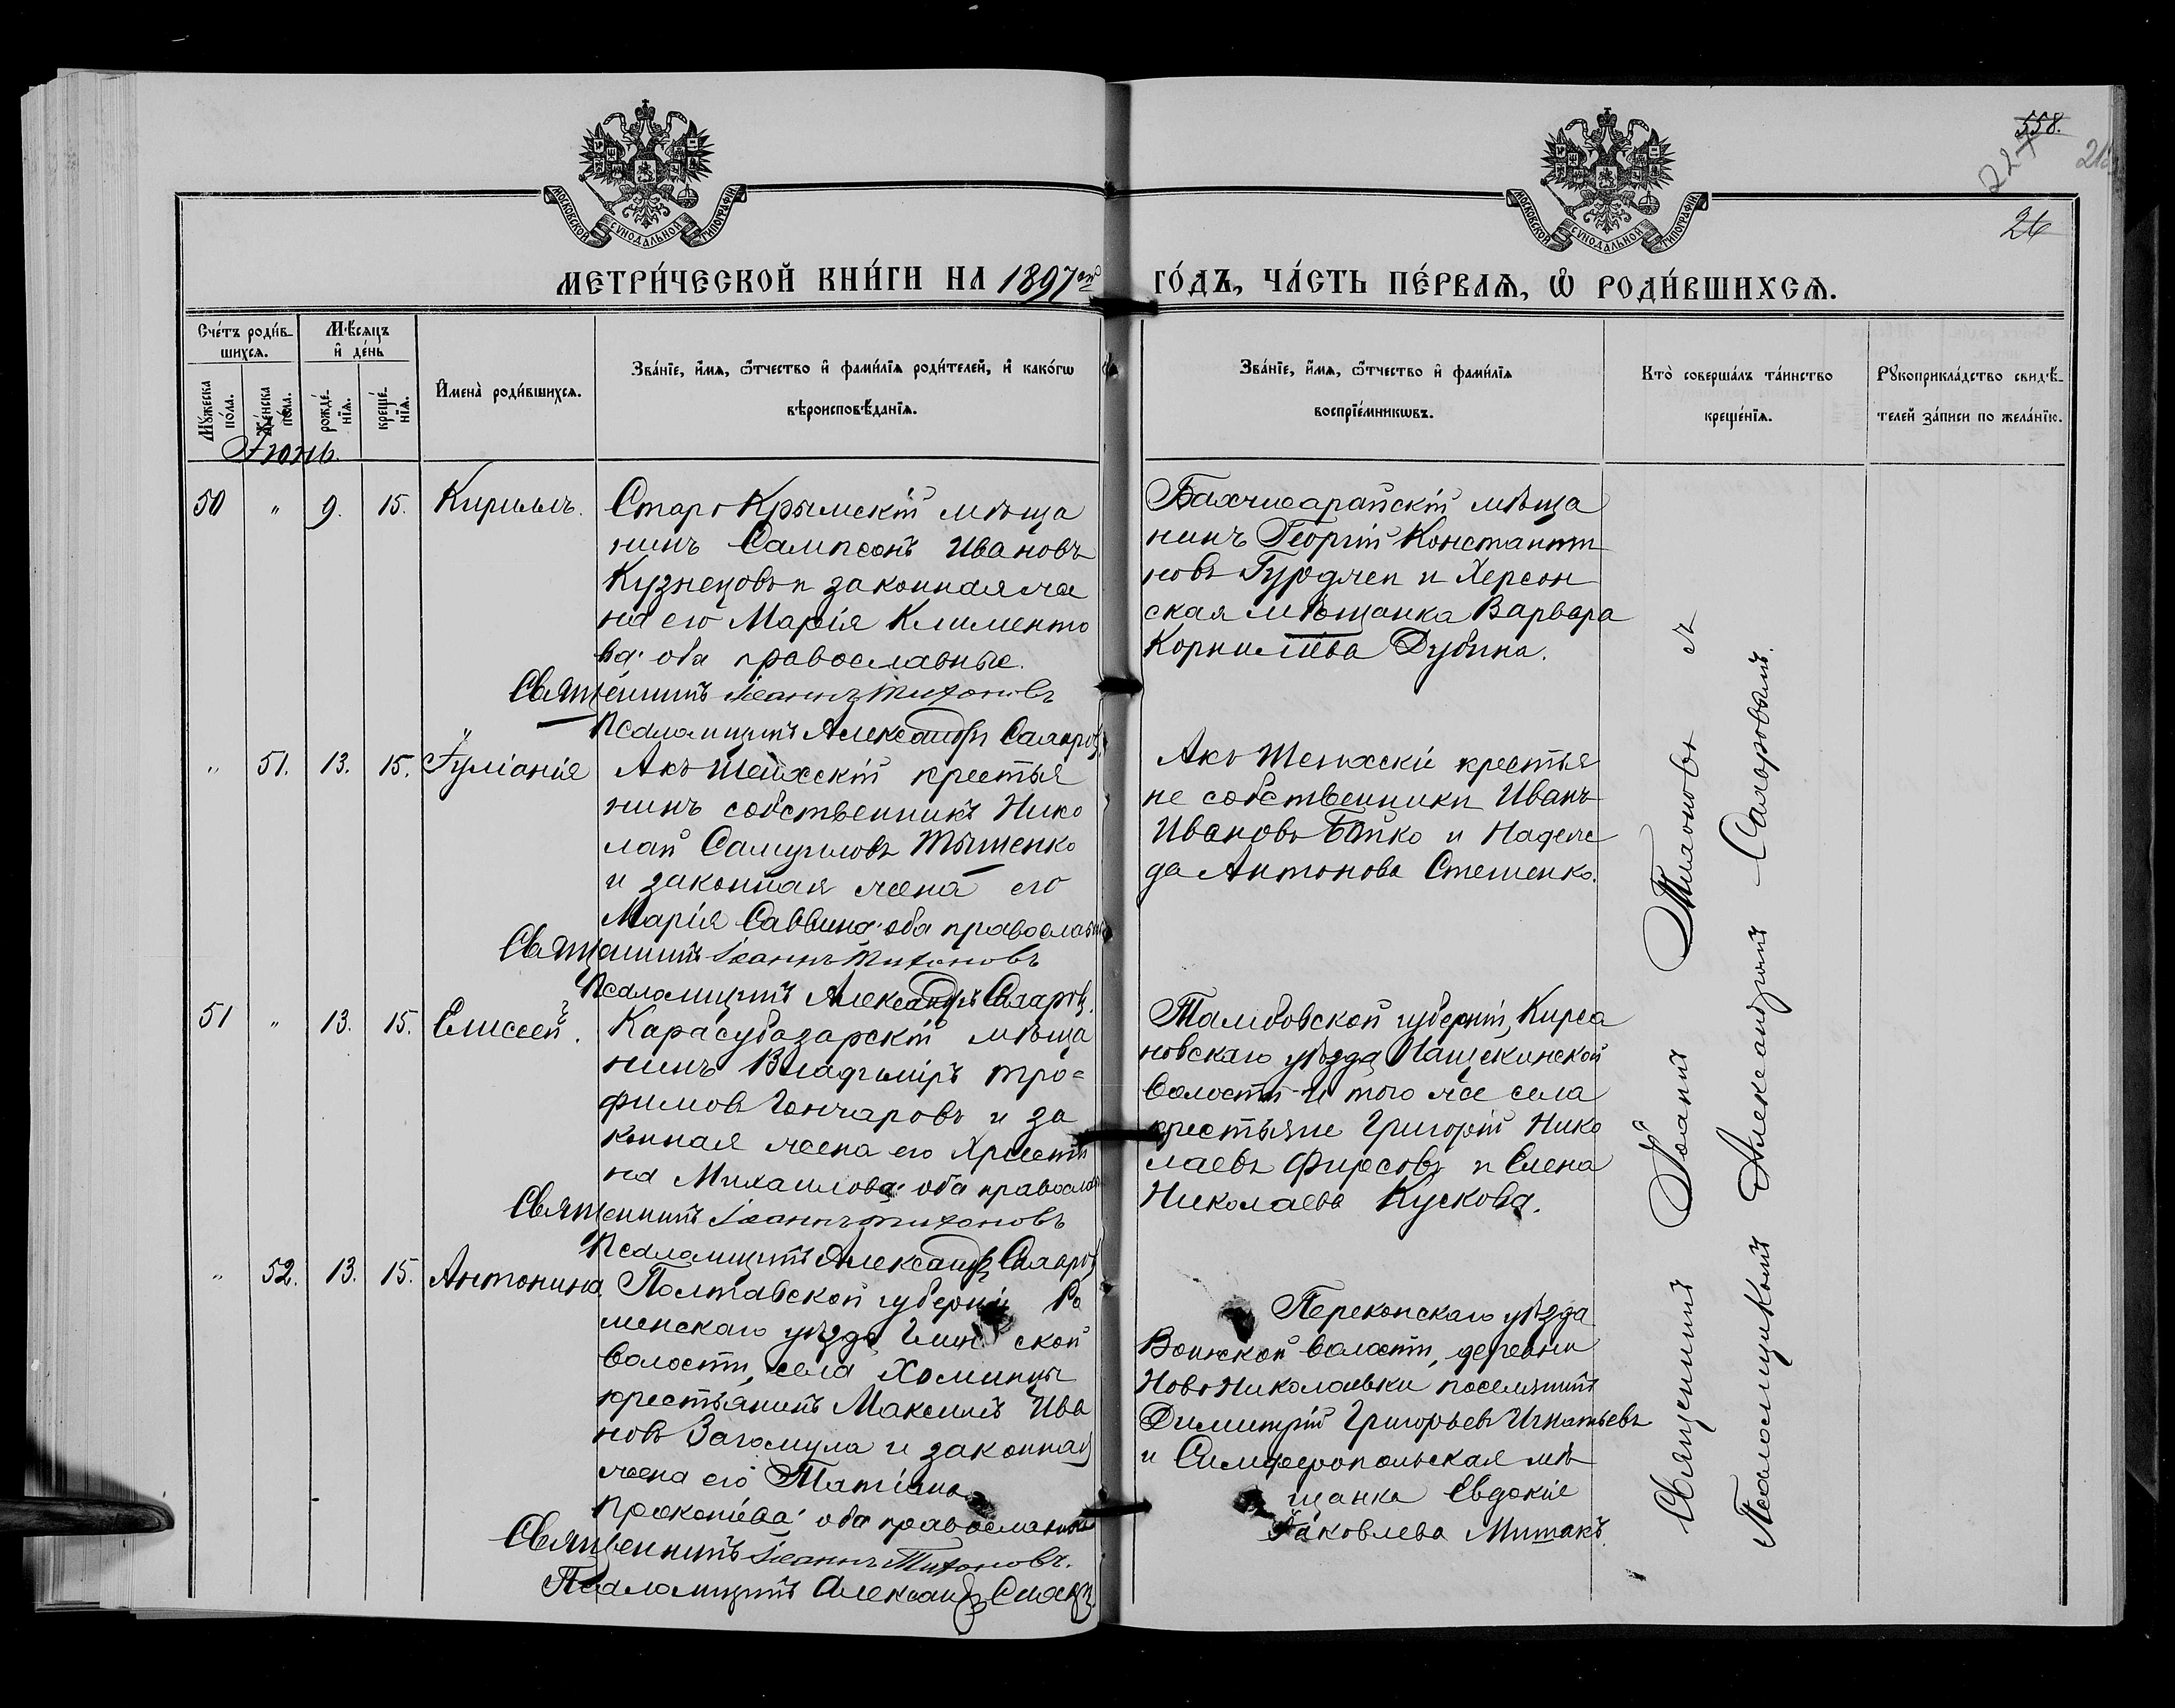 МОСКОВСКОЙ СѴНОДАЛЬНОЙ ТИПОГРАФІИ
МОСКОВСКОЙ СѴНОДАЛЬНОЙ ТИПОГРАФІИ
558.
227
26
МЕТРИ́ЧЕСКОЙ КНИ́ГИ НА 1897 ГО́ДЪ, ЧА́СТЬ ПЕ́РВАѦ, Ѡ҆ РОДИ́ВШИХСѦ.
Сче́тъ роди́в-
шихсѧ.
Мѣ́сяцъ
и҆ де́нь
Мꙋ́жеска по́ла.
Же́нска по́ла.
рожде́-
нїѧ.
креще́-
нїѧ.
И҆мена̀ роди́вшихсѧ.
Зва́нїе, и҆́мѧ, ѻ҆́тчество и҆ фами́лїѧ роди́телей, и҆ како́гѡ
вѣроисповѣ́данїѧ.
Зва́нїе, и҆́мѧ, ѻ҆́тчество и҆ фами́лїѧ
воспрїе́мникѡвъ.
Кто̀ соверша́лъ та́инство
креще́нїѧ.
Рꙋкоприкла́дство свидѣ́-
телей за́писи по жела́нїю.
Іюнь.
50 " 9. 15. Кириллъ.
СтароКрымскій мѣща
нинъ Сампсонъ Ивановъ
Кузнецовъ и законная же
на его МаріяКлименто
ва: оба православные.
Священникъ Іоаннъ Тихоновъ
Псаломщикъ Александръ
Бахчисарайскій мѣща
нинъ Георгій Константи
новъ и Херсон
ская мѣщанка Варвара
Корниліева Дубина.
" 51. 13. 15. Іуліанія
Акъ Шейхскій крестья
нинъ собственникъ Нико
лай Самуиловъ Тыщенко
и законная жена его
Марія Саввина: оба православн
Священникъ Іоаннъ Тихоновъ
Псаломщикъ Александръ
Акъ Шейхскіе крестья
не собственники Иванъ
Ивановъ Бойко и Надеж
да Антонова Стешенко.
51 " 13. 15. Елиссей.
Карасубазарскій мѣща
нинъ Владиміръ Тро=
фимовъ Гончаровъ и за
конная жена его Христи
на Михаилова: оба православ
Священникъ Іоаннъ Тихоновъ
Псаломщикъ Александръ
Тамбовской губерніи, Кирса
новскаго уѣзда
волости и того же села
крестьяне Григорій Нико
лаевъ Фирсовъ и Елена
Николаева Кускова.
" 52. 13. 15. Антонина.
Полтавской губерніи Ро
менскаго уѣзда ской
волости, села Хоминцы
крестьянинъ Максимъ Ива
новъ Загомула и законная
жена его Татіана
Прокопіева: оба православные
Священникъ Іоаннъ Тихоновъ.
Псаломщикъ Александръ
Перекопскаго уѣзда
Воинской волости, деревни
НовоНиколаевки поселянинъ
Димитрій Григорьевъ Игнатьевъ
и Симферопольская мѣ
щанка Евдокія
Яковлева Митакъ.
Священникъ Іоаннъ Тихоновъ съ
Псаломщикомъ Александромъ